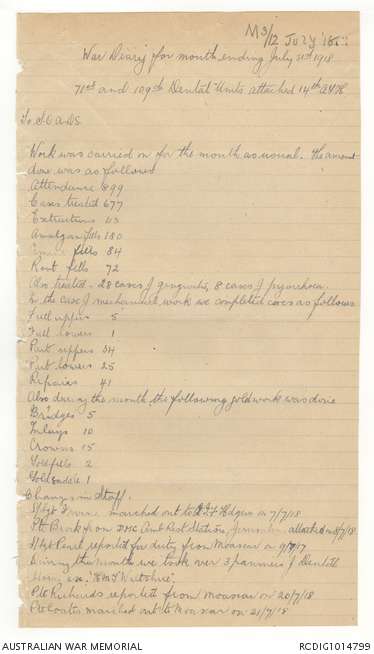 M3/12 July 18
War Diary for month ending July 31st 1918
71st and 109th Dental Units attached 14th AGH
To S.O. A.D.S.
Work was carried on for the month as usual. The amount
done was as follows
Attendance 899
Cases treated 677
Extractions 113
Amalgam fills 180
Cement fills 84
Root fills 72
Also treated - 28 cases of gingivitis, 8 cases of pyorrhoea.
In the case of mechanical work we completed cases as follows
Full uppers 5
Full lowers 1
Part uppers 34
Part lowers 25
Repairs 41
Also during the month the following goldwork was done
Bridges 5
Inlays 10
Crowns 15
Goldfills 2
Gold 1
Changes in Staff.
S/Sgt marched out to AIF Hdqrs on 7/7/18
Pte Brock from DMC Aust Rest Station, Jerusalem attached on 8/7/18
S/Sgt reported for duty from Moascar on 9/7/17
During the month we took over 3 panniers of Dental
ex "HMT Wiltshire".
Pte Richards reported from Moascar on 20/7/18
Pte Coates marched out to Moascar on 21/7/18
AUSTRALIAN WAR MEMORIAL
RCDIG1014799